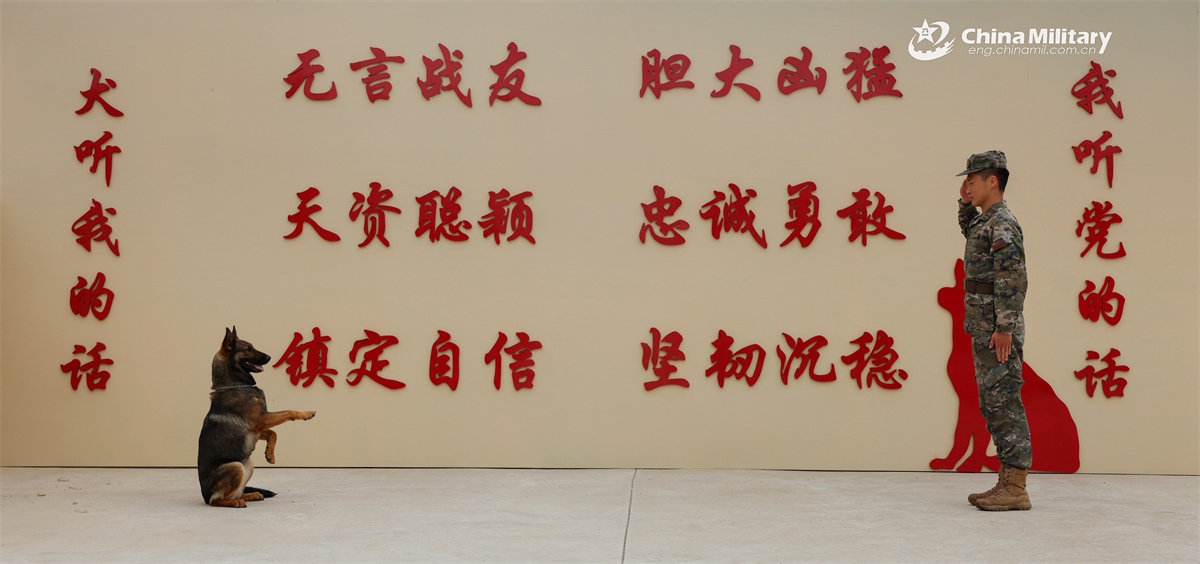 China Military
eng.chinamil.com.cn
犬听我的话
无言战友 胆大凶猛
天资聪颖 忠诚勇敢
镇定自信 坚韧沉稳
我听党的话